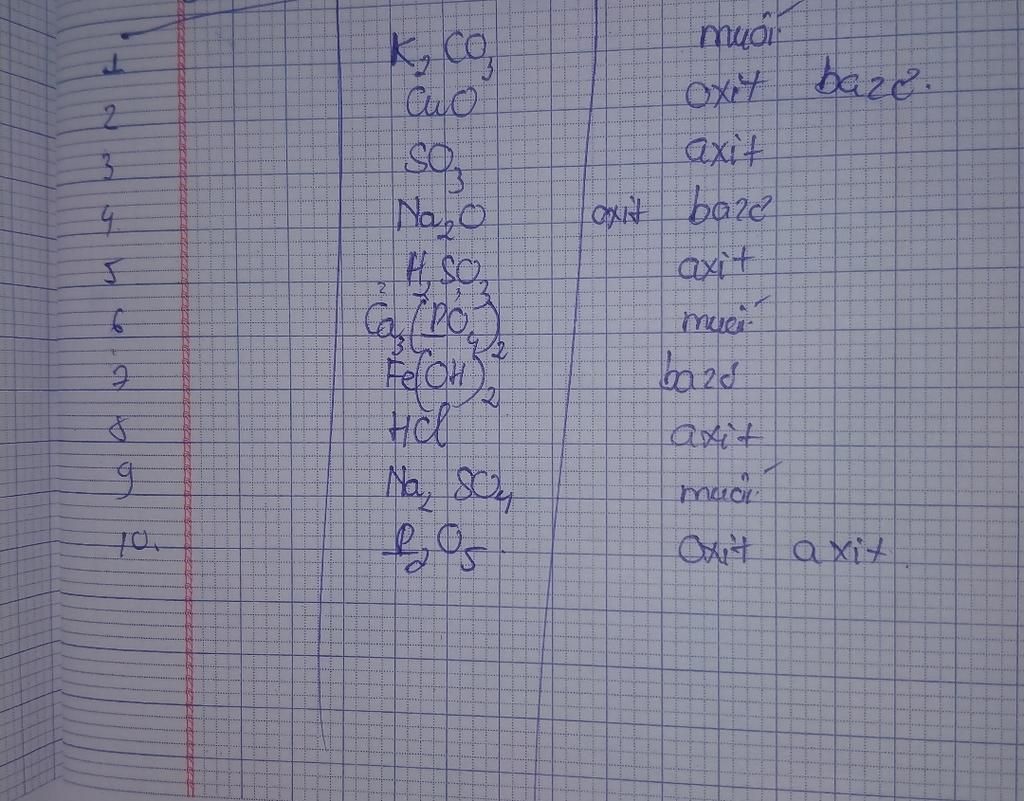 1 K₂CO₃ muối
2 CuO oxit bazơ.
3 SO₃ axit
4 Na₂O oxit bazơ
5 H₂SO₃ axit
6 Ca₃(PO₄)₂ muối
7 Fe(OH)₂ bazơ
8 HCl axit
9 Na₂SO₄ muối
10. P₂O₅. oxit axit